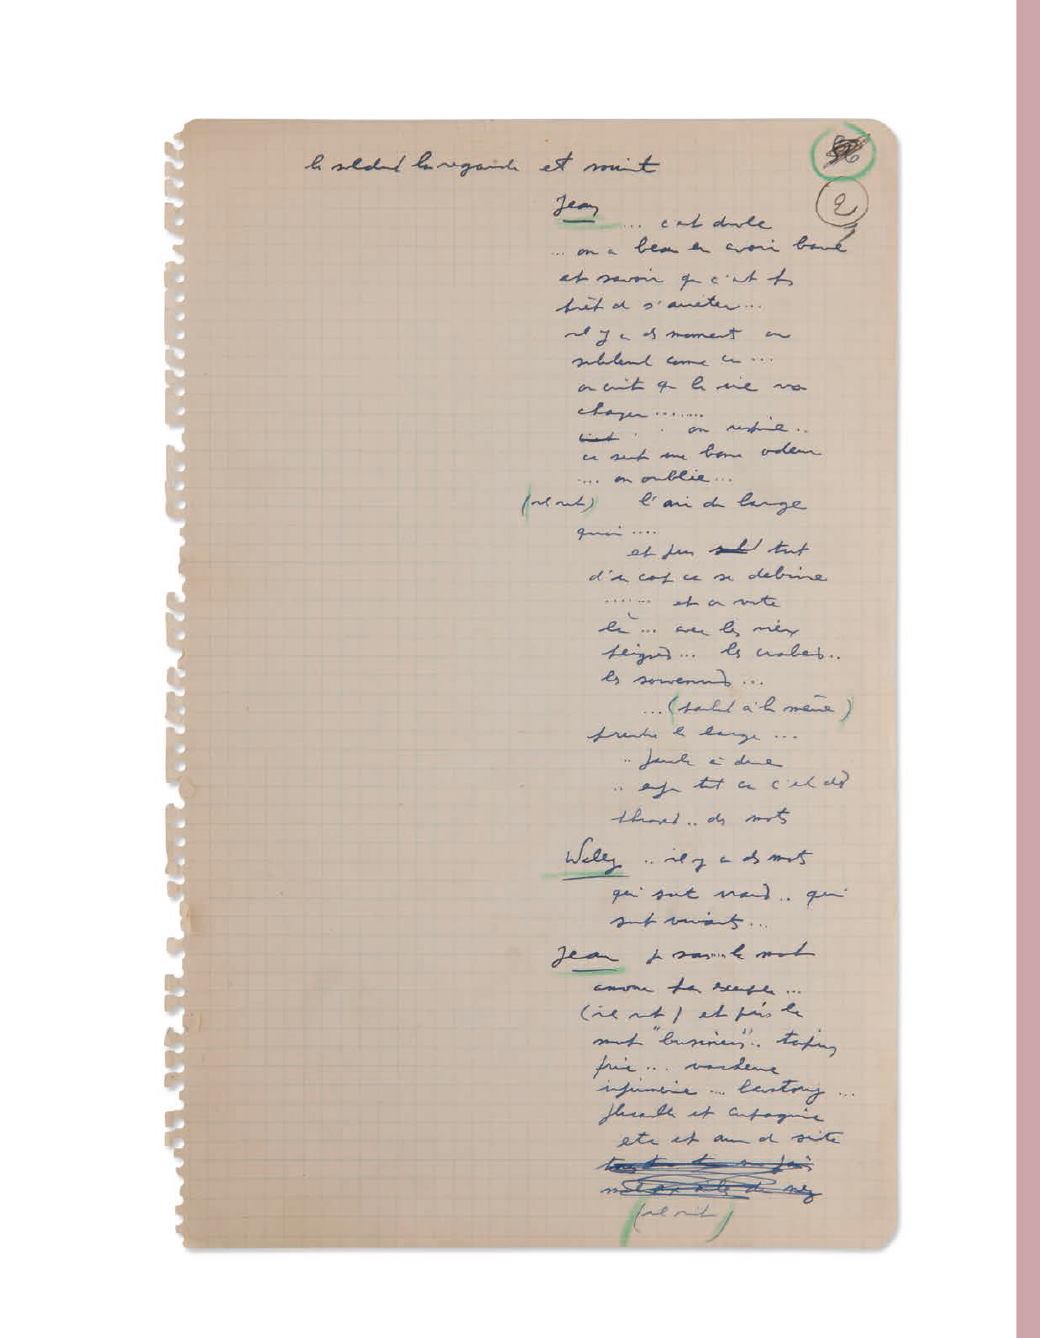 le soldat la regarde et sourit
2
Jean
... c'est drole
... on a beau en avoir bavé
et savoir que c'est pas
prêt de s'arrêter...
il y a des moments on
comme ça ...
on croit que la vie va
changer .......
on respire ..
ça sent une bonne odeur
.... on oublie ...
(il rit) l'air du large
quoi ....
et puis tout
d'un coup ça se debine
....... et on reste
là ... avec les vieux
peignes ... les crabes ..
les souvenirs ...
... (tout à la même)
prendre le large ...
.. facile à dire
.. enfin tout ça c'est des
phrases .. des mots
Welly .. il y a des mots
qui sont vrais .. qui
sont vivants ...
Jean je sais... le mot
amour par exemple ...
(il rit) et puis le
mot "business" .. tapin
fric ...
infirmerie ... bastong ...
flicaille et compagnie
etc et ainsi de suite
(il rit)